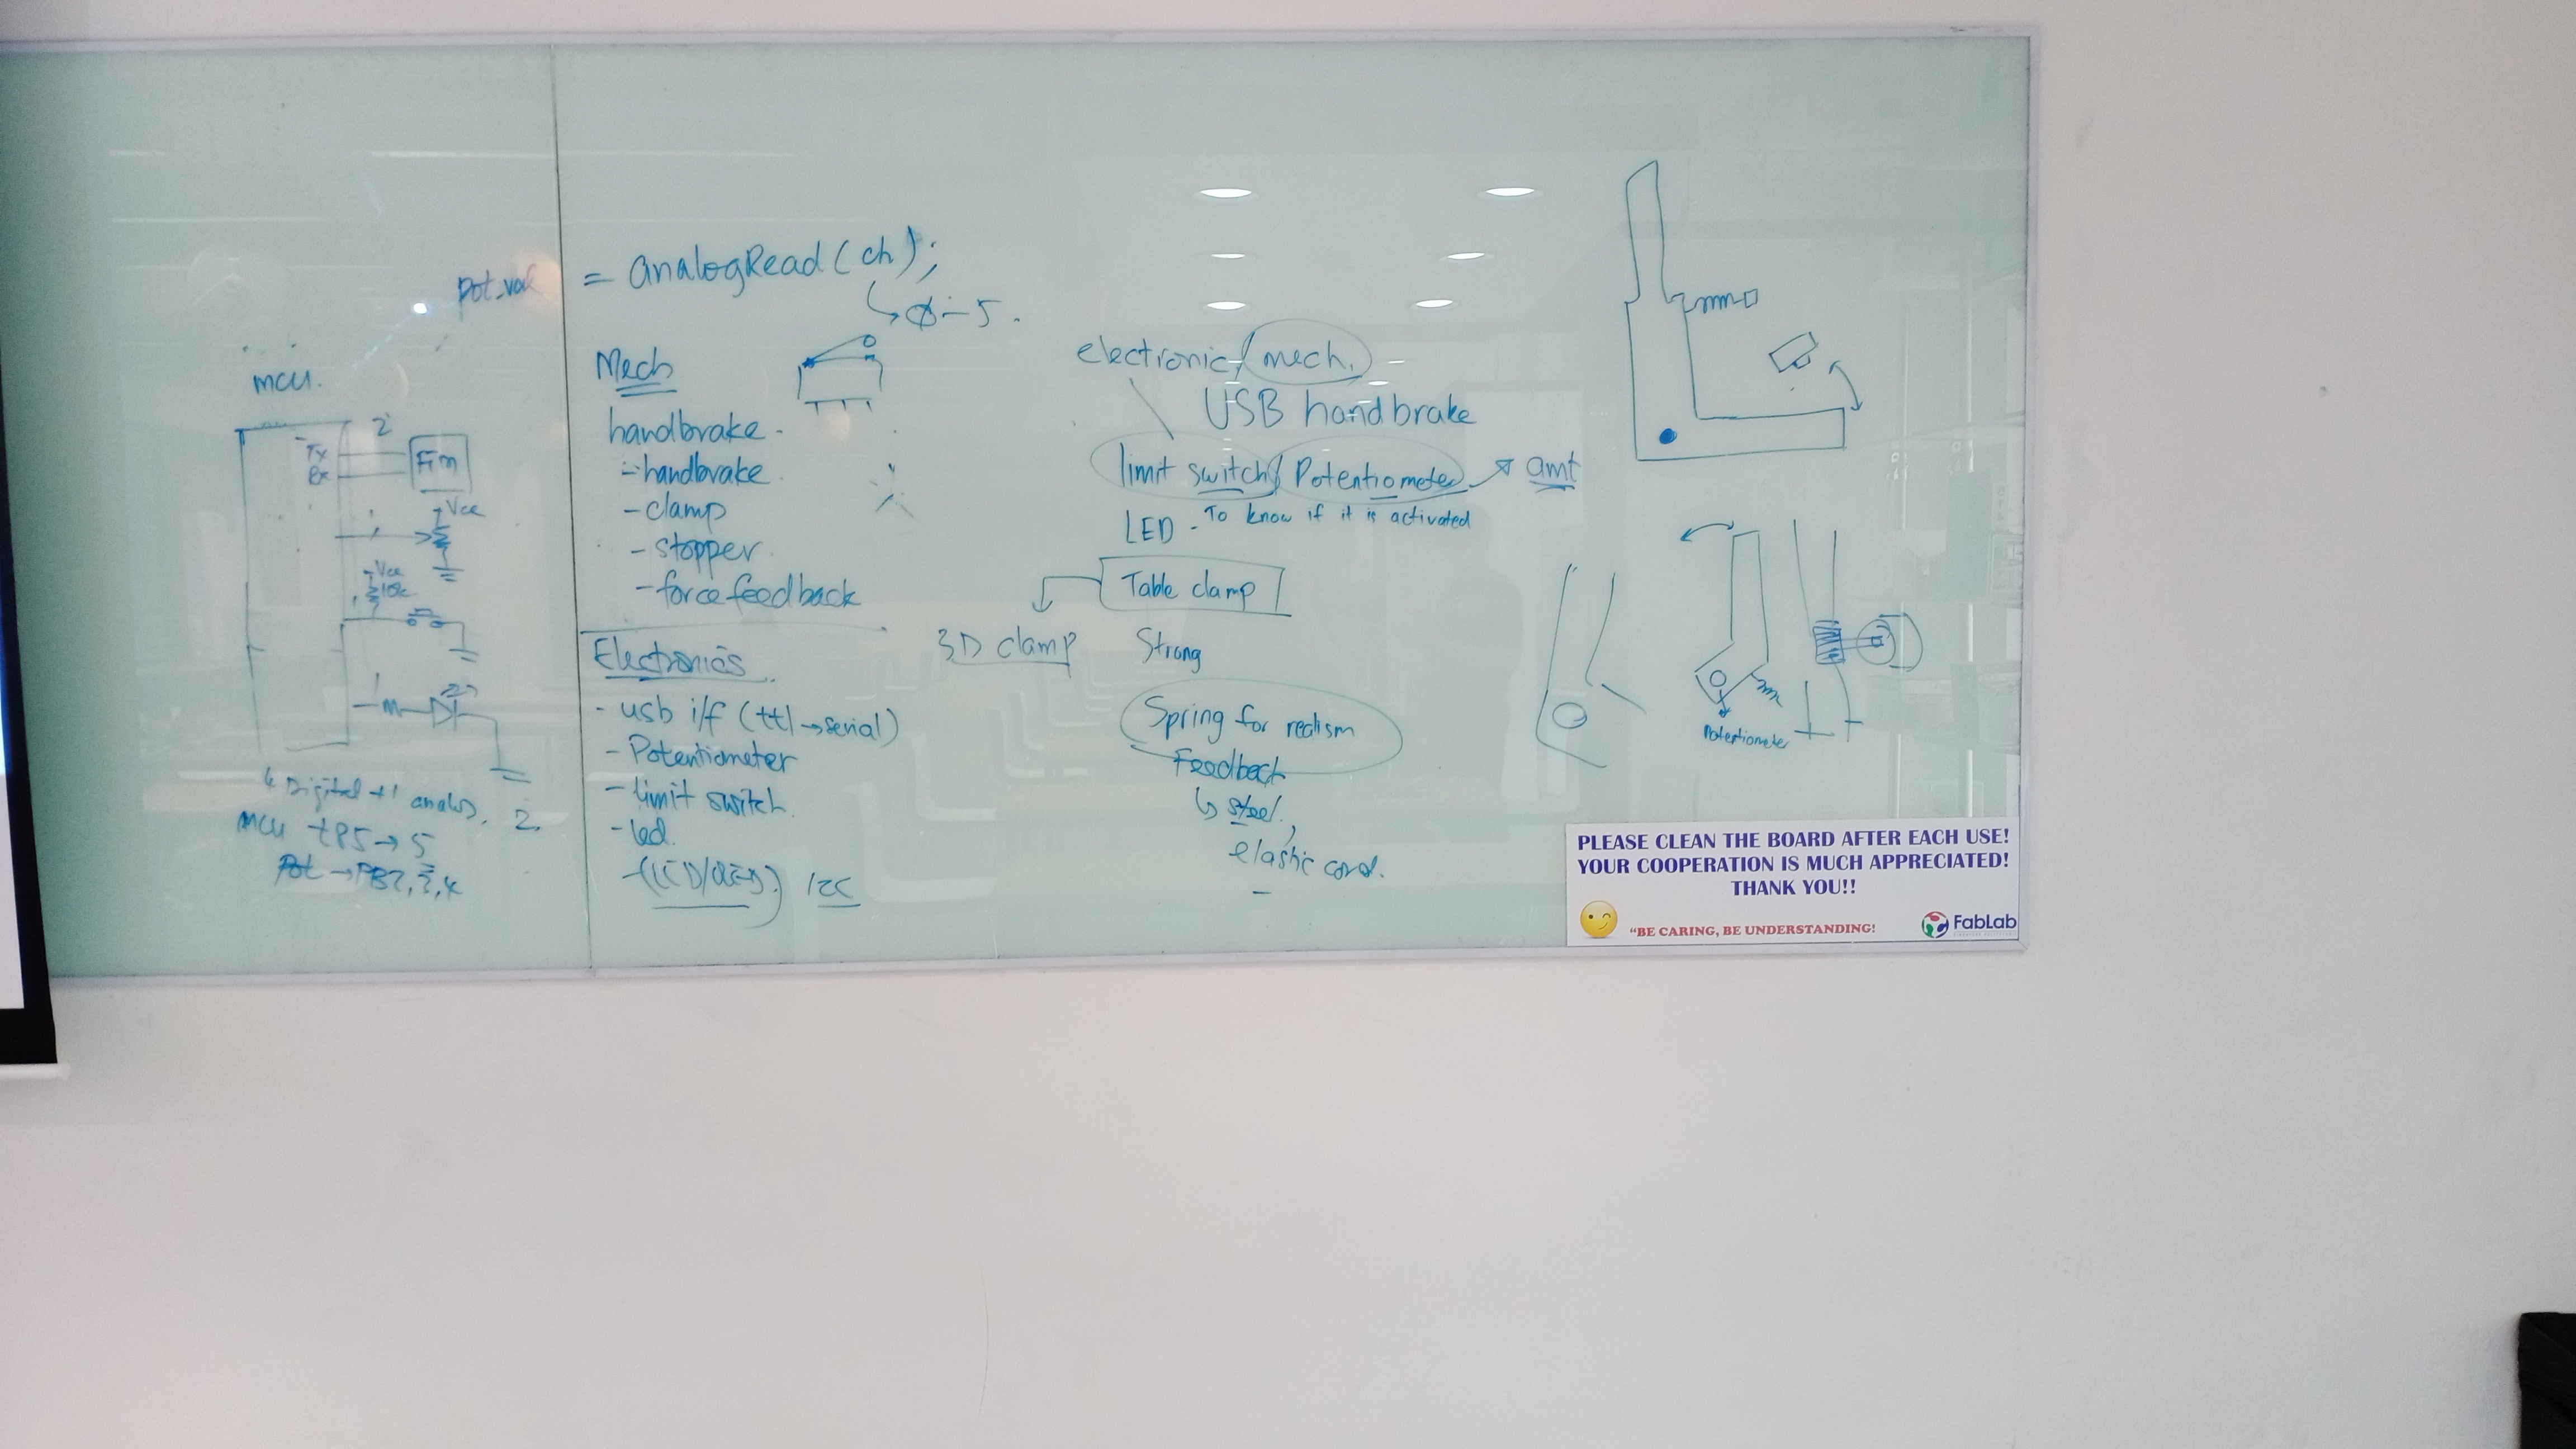 pot_val = analogRead(ch);
0-5.
MCU.
2
Tx
Rx
Vcc
Vcc
10k
1
4 Digital +1 analog, 2.
MCU tP5→5
Pot →PB2,3,4
Mech
handbrake-
-handbrake
-clamp
-stopper
-force feedback
Electronics
-usb i/f (ttl→serial)
-Potentiometer
-limit switch.
-led.
I2C
electronic/mech.
USB handbrake
limit switch/Potentiometer → amt
LED - To know if it is activated
Table clamp
3D clamp
Strong
Spring for realism
Feedback
↳ steel,
elastic cord.
Potentiometer
PLEASE CLEAN THE BOARD AFTER EACH USE!
YOUR COOPERATION IS MUCH APPRECIATED!
THANK YOU!!
"BE CARING, BE UNDERSTANDING!
FabLab